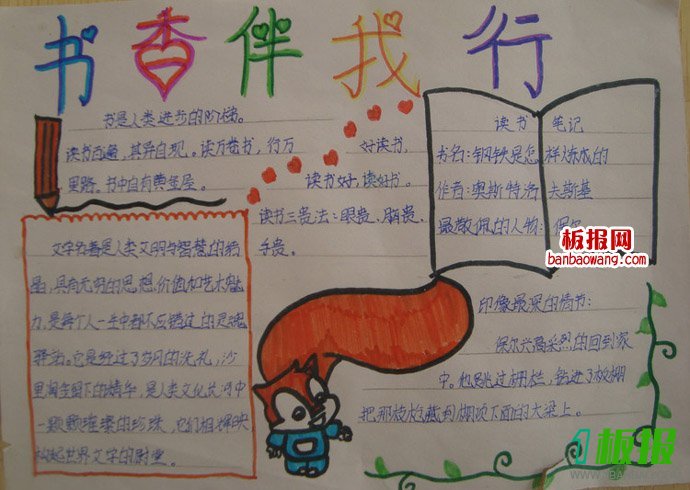 书香伴我行
书是人类进步的阶梯。
读书百遍，其异自现。读万卷书，行万
里路。书中自有黄金屋。
好读书，
读书好，读好书。
读书三贵法：眼贵、脑贵、
手贵。
读书 笔记
书名：钢铁是怎样炼成的
作者：奥斯特洛夫斯基
最敬佩的人物：保尔
板报网
banbaowang.com
文字名著是人类文明与智慧的结
晶，具有光明的思想价值和艺术魅
力，是每个人一生中都不应错过的灵魂
驿站。它是经过了岁月的洗礼，沙
里淘金留下的精华，是人类文化长河中
一颗颗璀璨的珍珠，它们相辉映
构起世界文学的殿堂。
印像最深的情节：
保尔兴高采烈的回到家
中。他跳过栅栏，钻进了板棚
把那枝枪藏到棚顶下面的大梁上。
板报